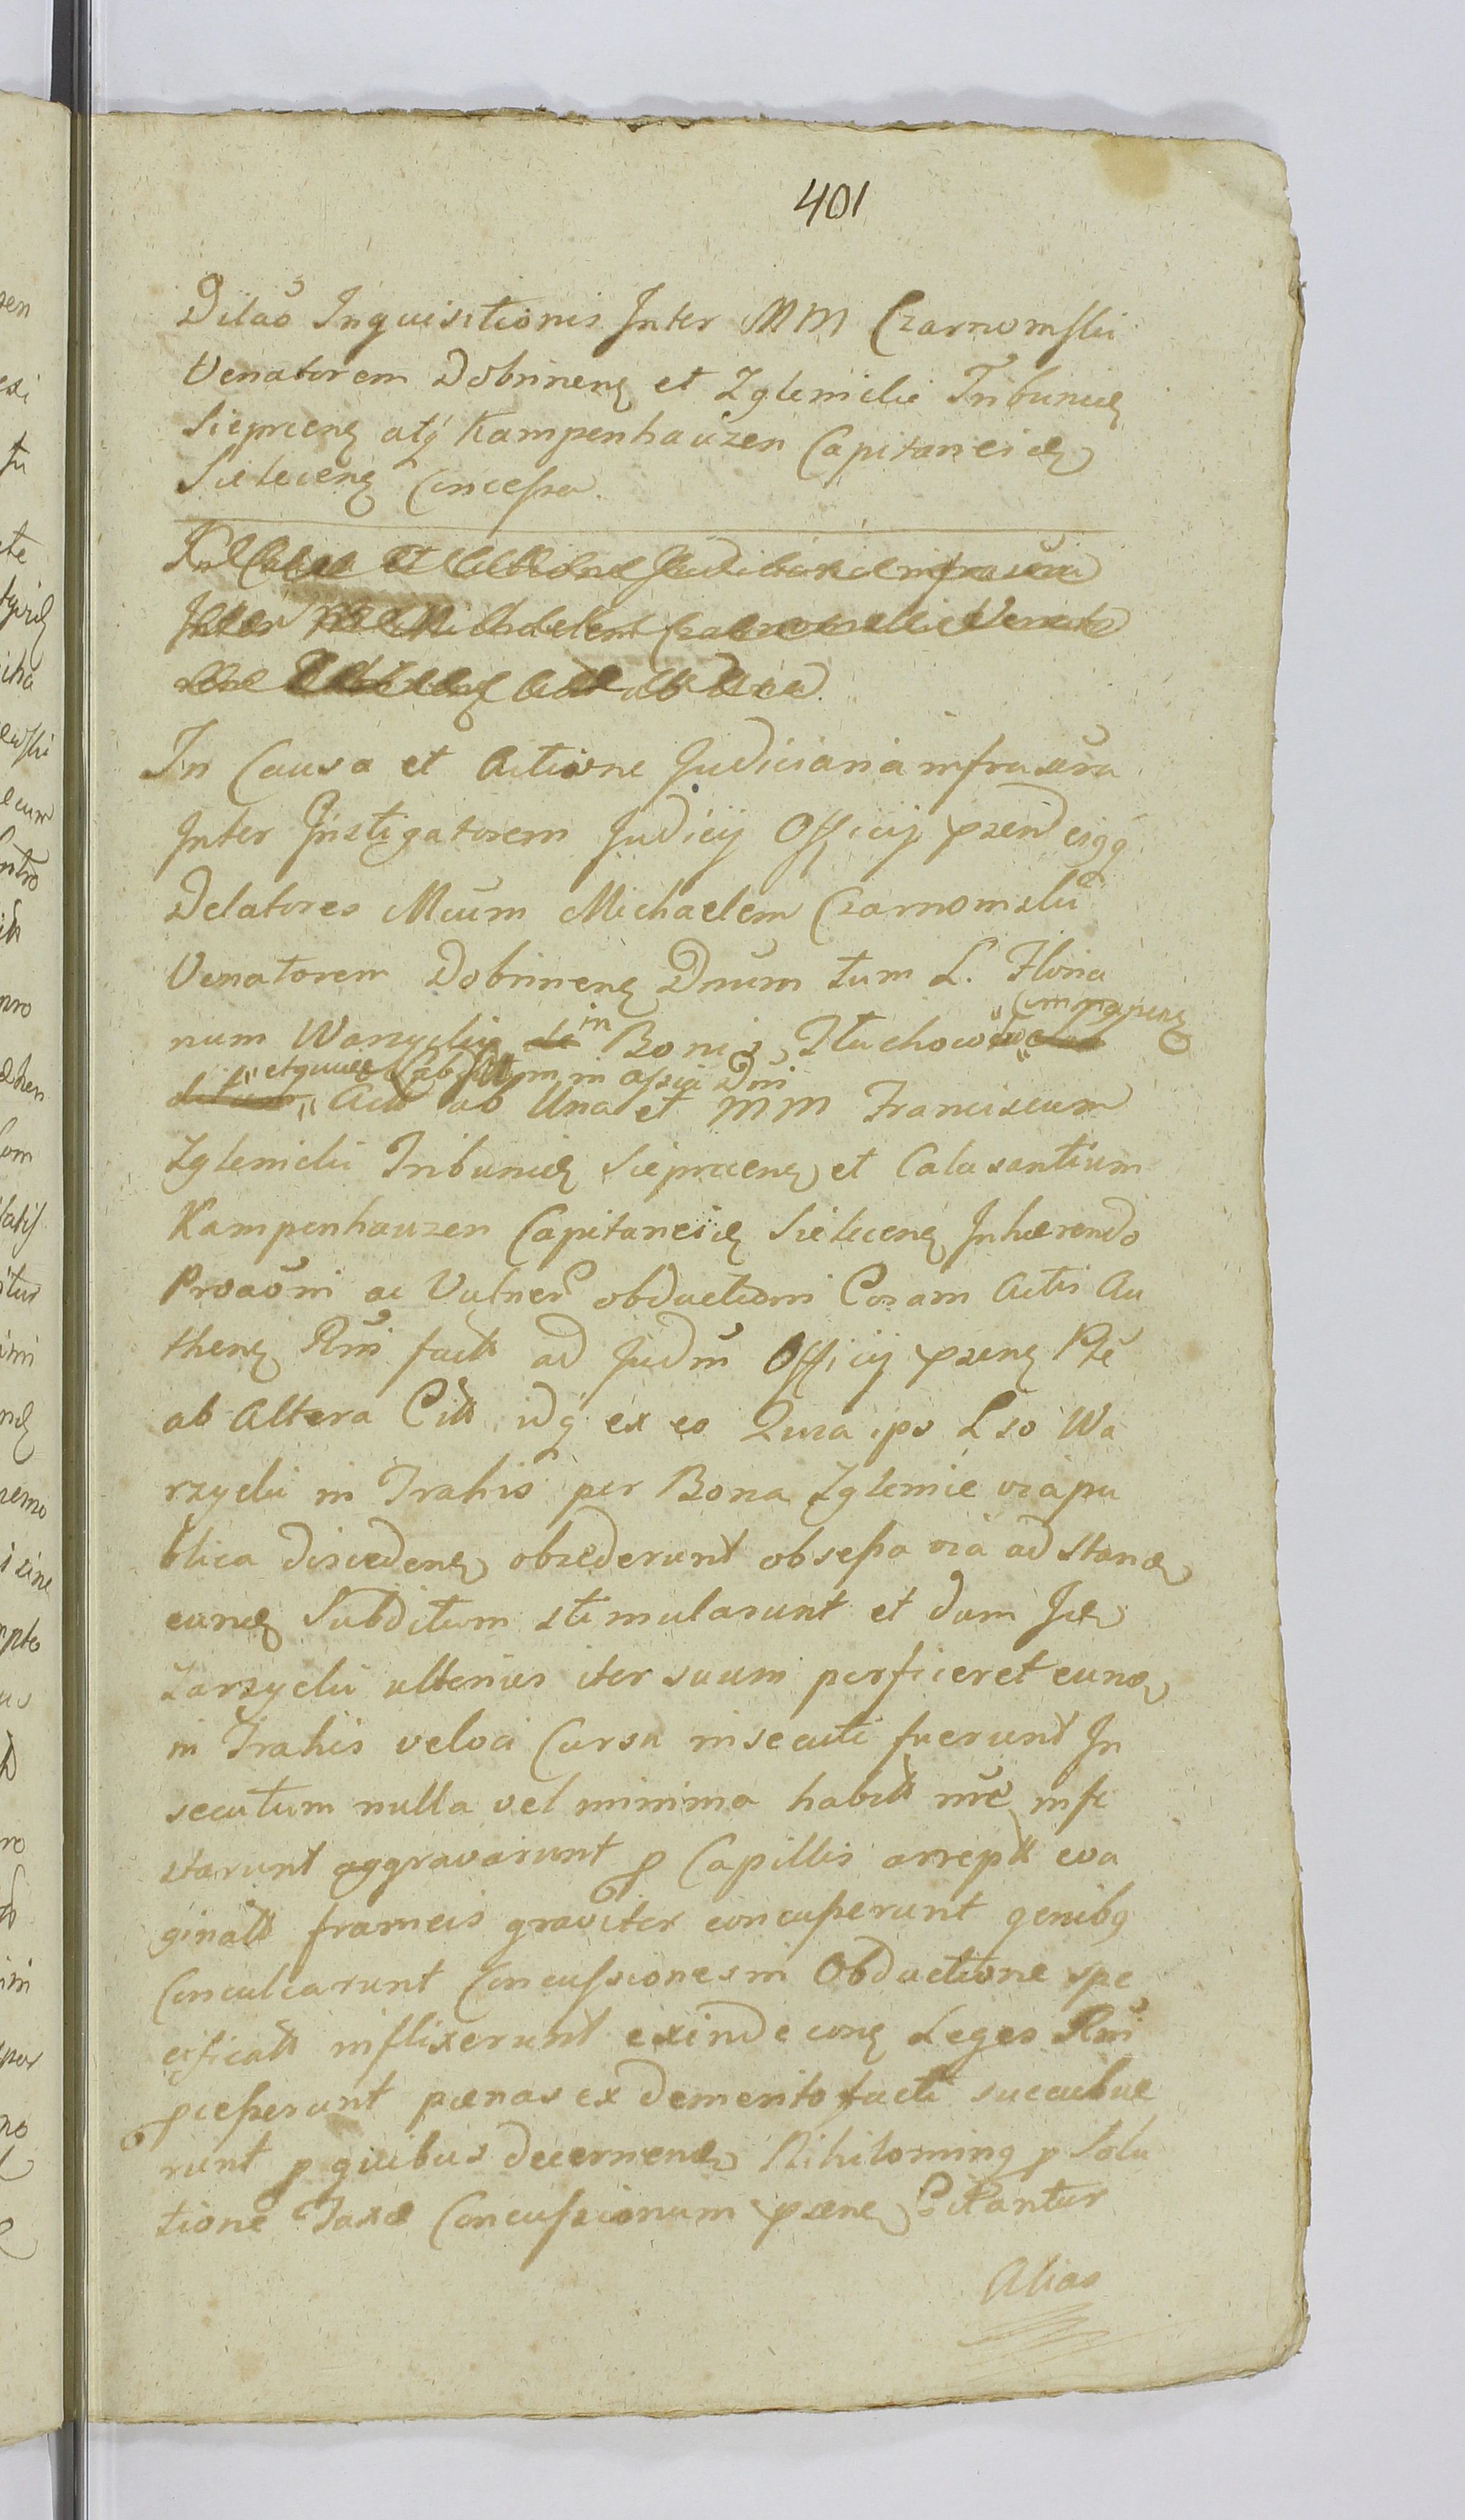 401
Dilaō Inquisitionis Inter MM Czarnomskii
Venatorem Dobrinenę et Zglenicki Tribunidę
Sieprcenę atq́ Kampenhauzen Capitaneidę
Sieleccenę Concessa.
In Causa et Actione Judiciaria infrascra
Inter
In Causa et Actione Judiciaria infrascra
Inter Instigatorem Judicij Officij praend eiqq
Delatores Mcum Michaelem Czarnomskii
Venatorem Dobrinenę Dnum tum L. Floria
num Warzycki in Bonis Tłuchowo Commorenę
Actō ab Una et MM Franciscum
Zglenicki Tribunidę Sieprcenę et Calasantium
Kampenhauzen Capitaneidę Sieleccenę Inhaerendo
Proaōni ac Vulner obductioni Coram Actis Au
thenę Rni factt ad Judm Officij praenę Pte
ab Altera Citt idq́ ex eo Quia ipso Lso Wa
rzycki in Trahis per Bona Zglenice via pu
blica discedenę obsederunt obsessa via ad stand
eundę Subditum stimularunt et dum Idę
Zarzycki ulterius iter suum perficeret eundę
in Trahis veloci Cursu insecuti fuerunt In
secutum nulla vel minima habitt nre infe
starunt aggravarunt p Capillis arreptt eva
ginatt frameis graviter concusserunt genibq
Conculcarunt Concussiones in Obductione spe
cificatt inflixerunt exinde conę Leges Rni
pcesserunt poenas ex demerito facti succubue
runt p quibus decernendę Nihilominq p Solu
tione Taxae Concussionum praenę Citantur
Alias